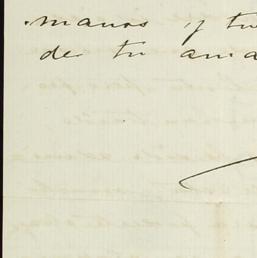 manos y tu
de tu ama